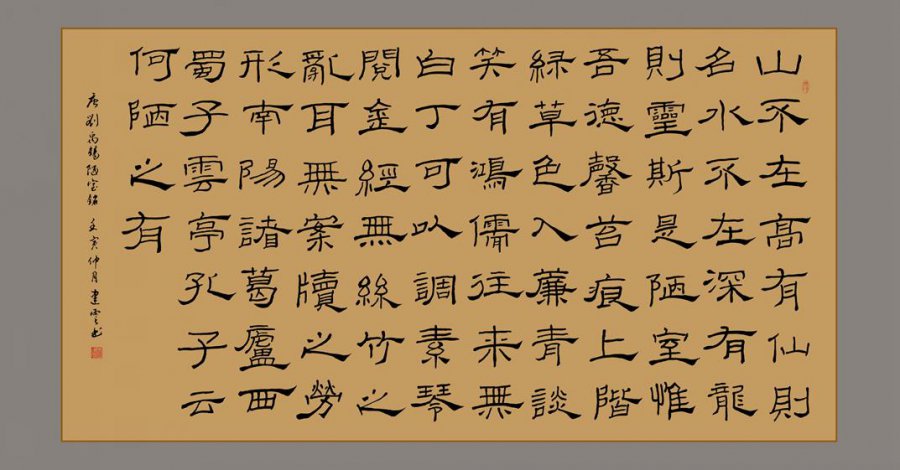 山不在髙有仙則
名水不在深有龍
則靈斯是陋室惟
吾德馨苔痕上階
緑草色入簾青談
笑有鴻儒往來無
白丁可以調素琴
閲金經無絲竹之
亂耳無案牘之勞
形南陽諸葛廬西
蜀子雲亭孔子云
何陋之有
唐劉禹錫陋室銘 壬寅仲月建雲书